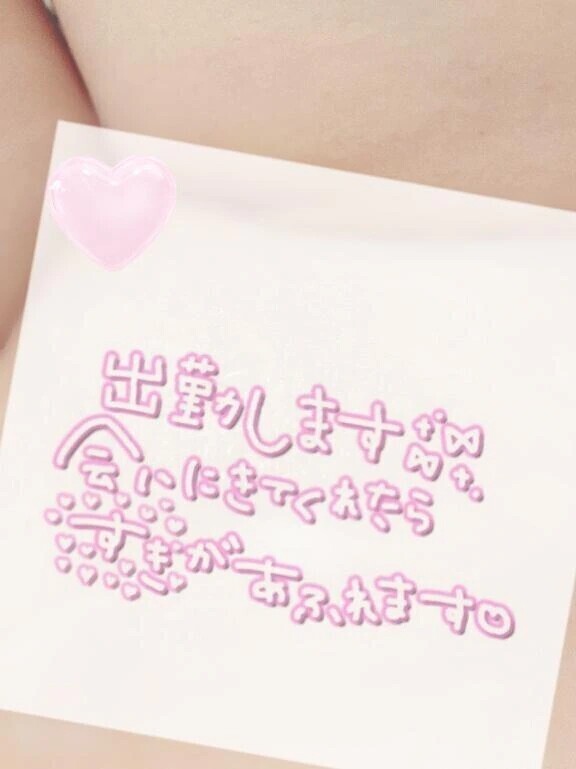 出勤します
会いにきてくれたら
すきがあふれます